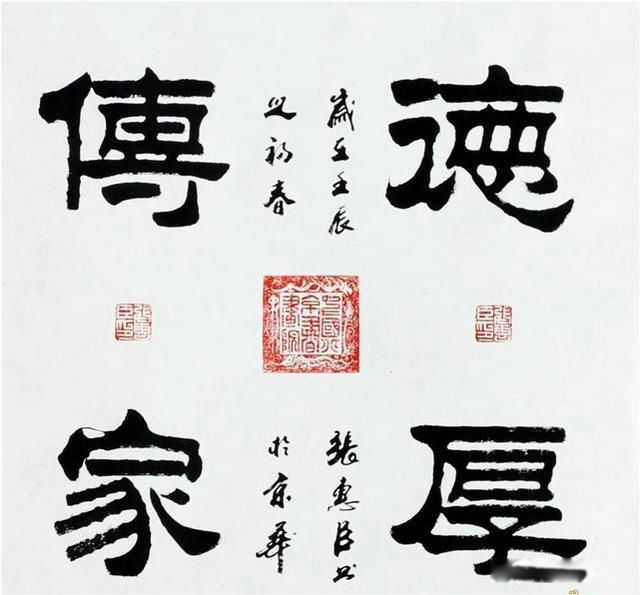 德厚
歲在壬辰
之初春
張惠臣书
於京華
傳家